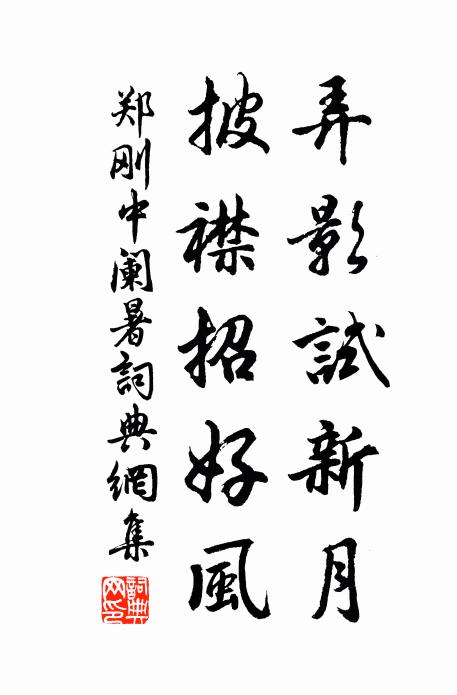 弄影試新月
披襟招好風
郑刚中阑暑詞典網集
詞典網印